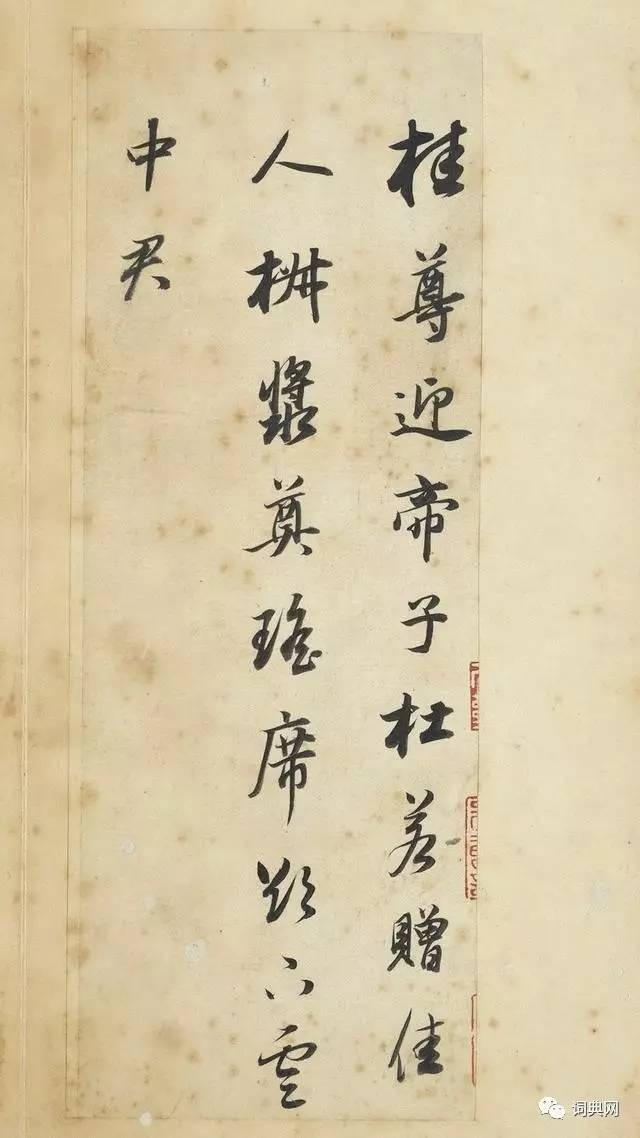 桂尊迎帝子杜若贈佳
人椒漿奠瑤席欲下雲
中君
词典网